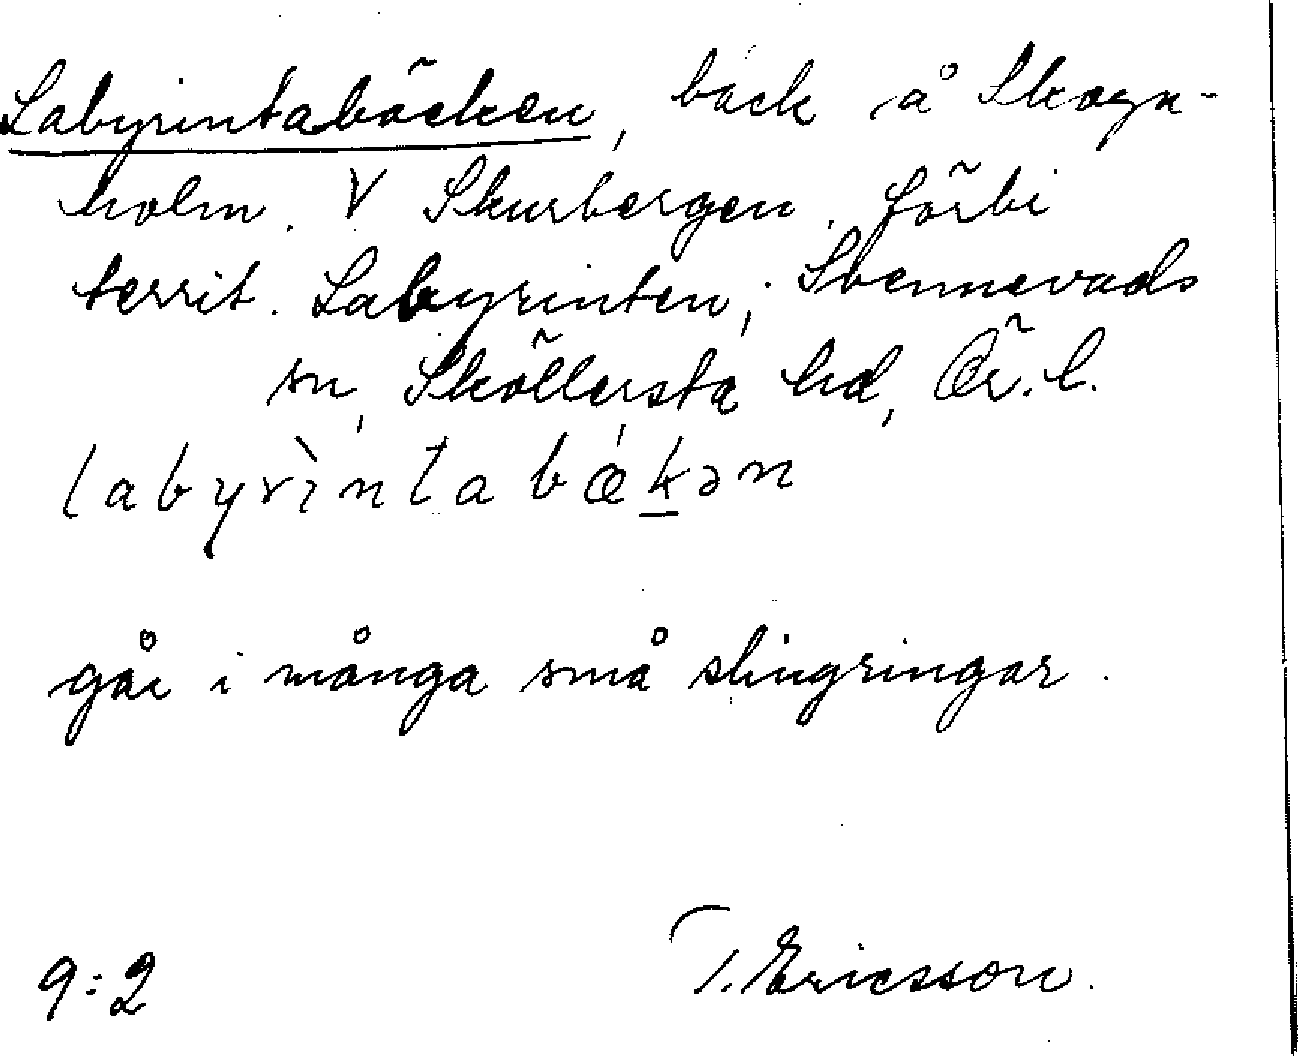 Labyrintabäcken, bäck å Skoga-
holm. V Skurbergen. förbi
territ. Labyrinten; Svennevads
sn, Sköllersta hd, Ör. l.
labyrìntabækən
går i många små slingringar.
9:2 T. Ericsson.